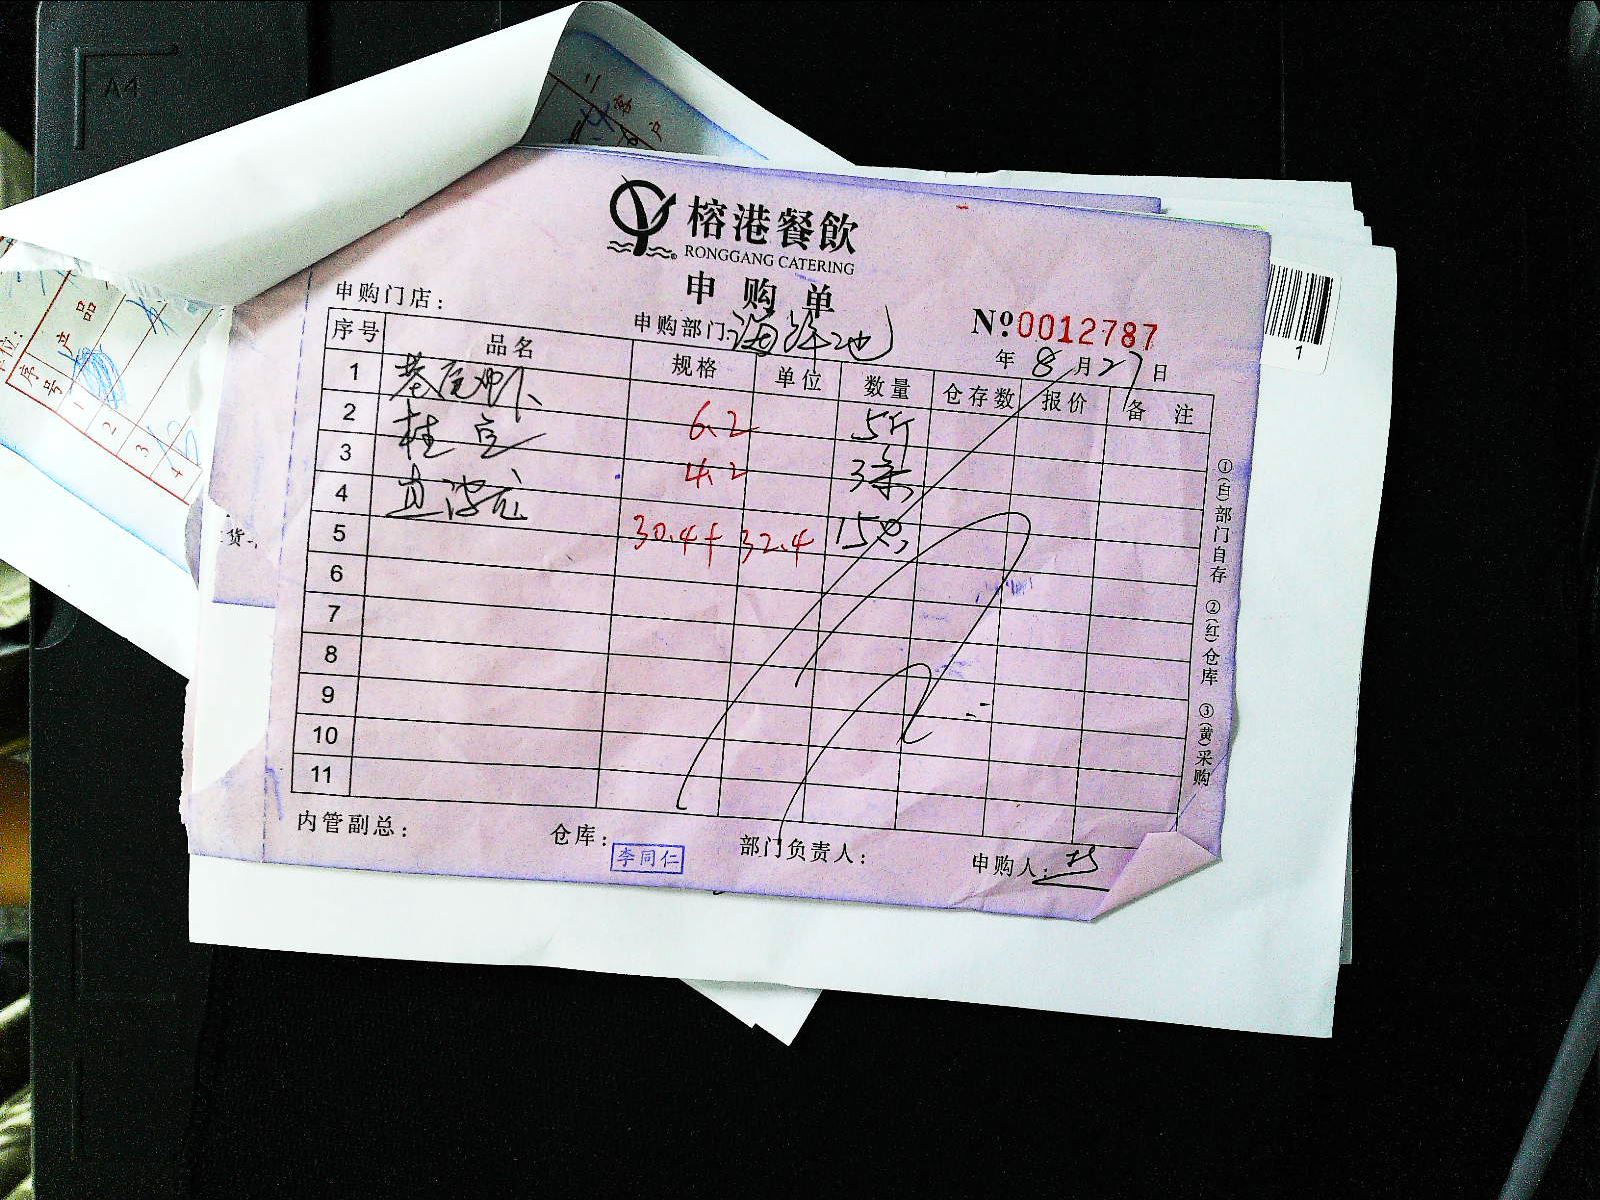 A4
榕港餐飲
RONGGANG CATERING
申购单
申购门店：
申购部门：海鲜池
Nº0012787
年 8月27日
序号 品名 规格 单位 数量 仓存数 报价 备注
1 基尾虾 6.2 5斤
2 桂鱼 4.2 3条
3 30.4+32.4 15只
4
5
6
7
8
9
10
11
①(白)部门自存 ②(红)仓库 ③(黄)采购
内管副总：
仓库：李同仁
部门负责人：
申购人：
1
客户
产品
序号
1
2
3
4
货